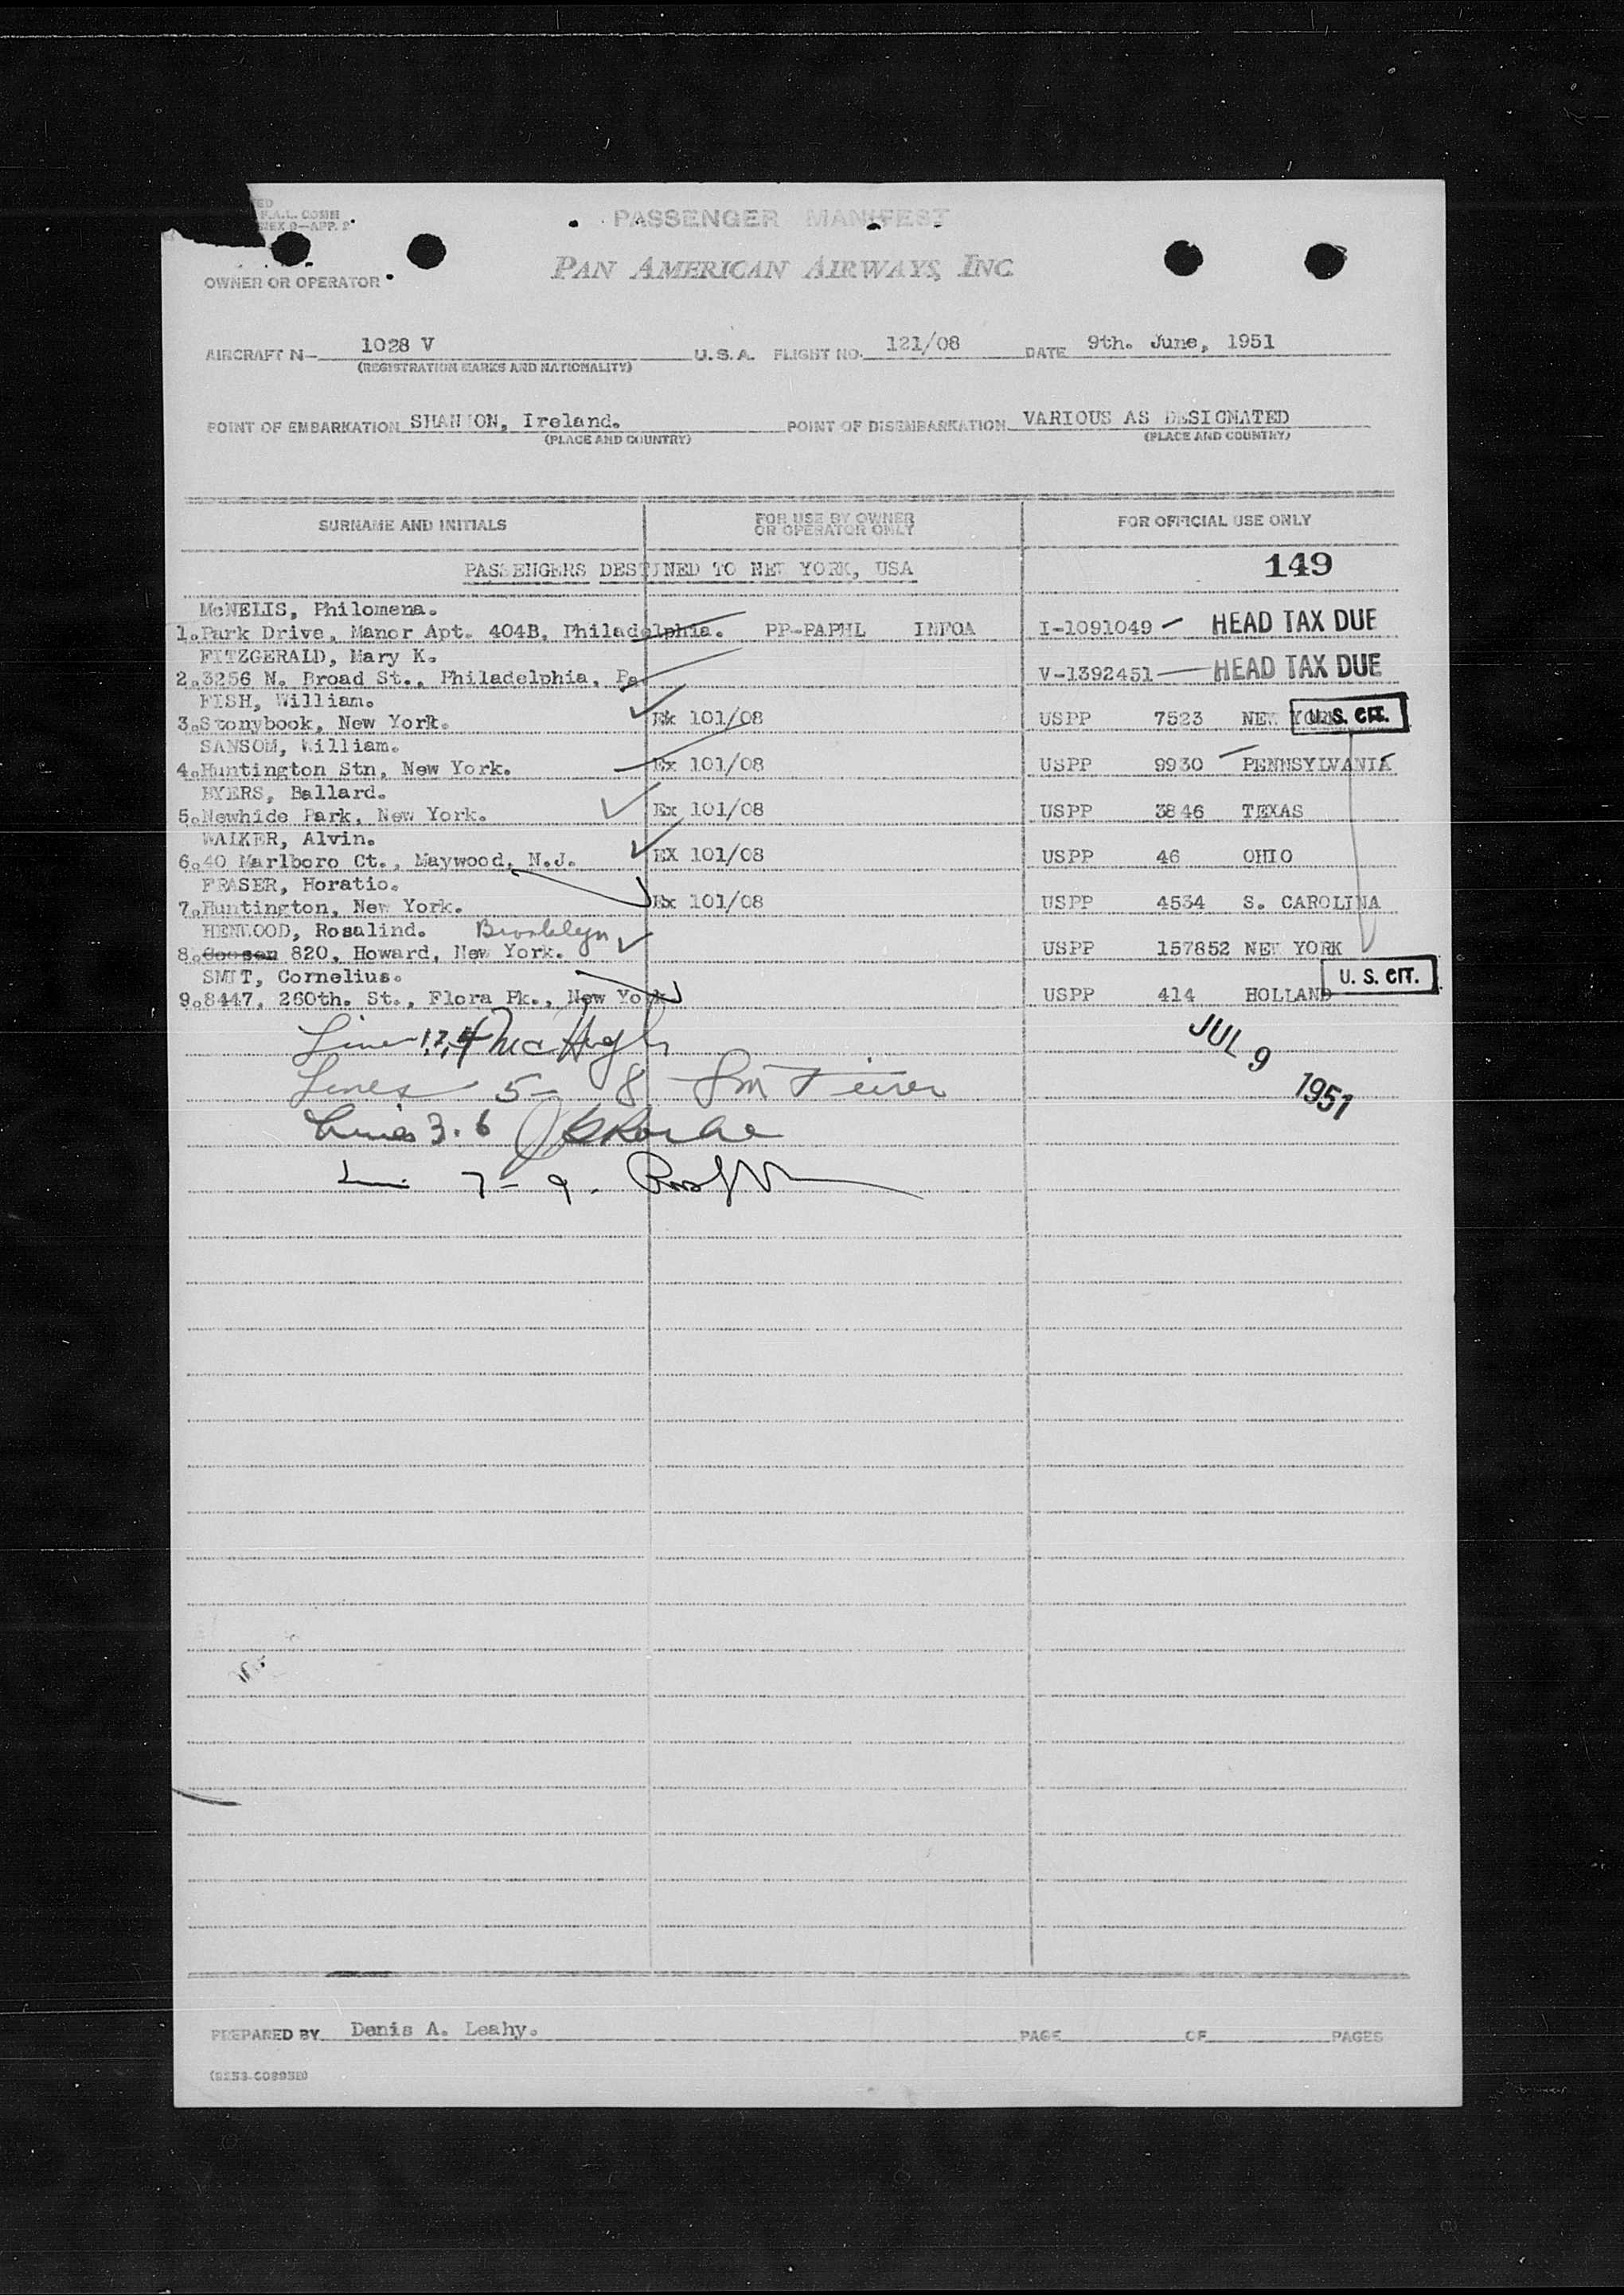 F.A.L. COMM
ANNEX 9—APP. 2
PASSENGER MANIFEST
PAN AMERICAN AIRWAYS, INC.
OWNER OR OPERATOR
AIRCRAFT N— 1028 V U.S.A. FLIGHT NO. 121/08 DATE 9th. June, 1951
(REGISTRATION MARKS AND NATIONALITY)
POINT OF EMBARKATION SHANNON, Ireland. POINT OF DISEMBARKATION VARIOUS AS DESIGNATED
(PLACE AND COUNTRY) (PLACE AND COUNTRY)
SURNAME AND INITIALS FOR USE BY OWNER OR OPERATOR ONLY FOR OFFICIAL USE ONLY
PASSENGERS DESTINED TO NEW YORK, USA 149
McNELIS, Philomena.
1. Park Drive, Manor Apt. 404B, Philadelphia. PP-PAPHL INFOA I-1091049 — HEAD TAX DUE
FITZGERALD, Mary K.
2. 3256 N. Broad St., Philadelphia, Pa V-1392451 — HEAD TAX DUE
FISH, William.
3. Stonybook, New York. Ex 101/08 USPP 7523 NEW YORK U.S. CIT.
SANSOM, William.
4. Huntington Stn, New York. Ex 101/08 USPP 9930 PENNSYLVANIA
BYERS, Ballard.
5. Newhide Park, New York. Ex 101/08 USPP 3846 TEXAS
WALKER, Alvin.
6. 40 Marlboro Ct., Maywood, N.J. EX 101/08 USPP 46 OHIO
FRASER, Horatio.
7. Huntington, New York. Ex 101/08 USPP 4534 S. CAROLINA
HENWOOD, Rosalind. Brooklyn
8. 820, Howard, New York. USPP 157852 NEW YORK
SMIT, Cornelius. U. S. CIT.
9. 8447, 260th. St., Flora Pk., New York USPP 414 HOLLAND
Line 1,2,4 McHugh JUL 9 1951
Lines 5 - 8
Lines 3. 6
7 - 9.
PREPARED BY Denis A. Leahy. PAGE OF PAGES